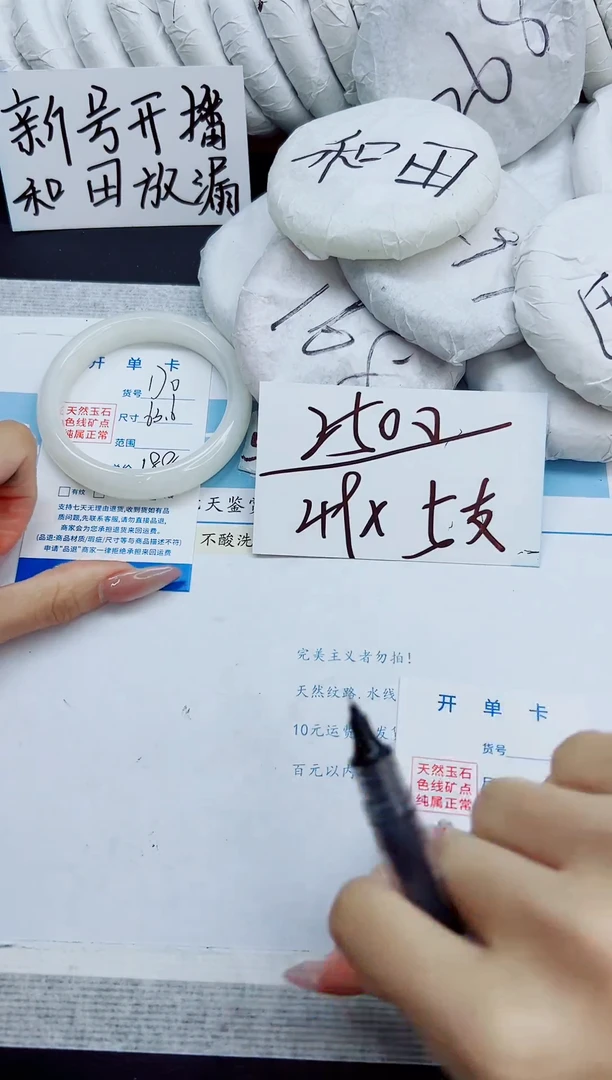 268
新号开播
和田放漏
和田
165
开单卡
货号 170
天然玉石
色线矿点
纯属正常
尺寸 63.6
范围
180
有纹
支持七天无理由退货,收到货如有品
质问题,先联系客服,请勿直接品退,
商家会为您承担退货来回运费。
(品退:商品材质/瑕疵/尺寸等与商品描述不符)
申请“品退”商家一律拒绝承担来回运费
250
49x 5支
天鉴
不酸洗
完美主义者勿拍!
天然纹路.水线
10元运费
百元以内
开单卡
货号
天然玉石
色线矿点
纯属正常